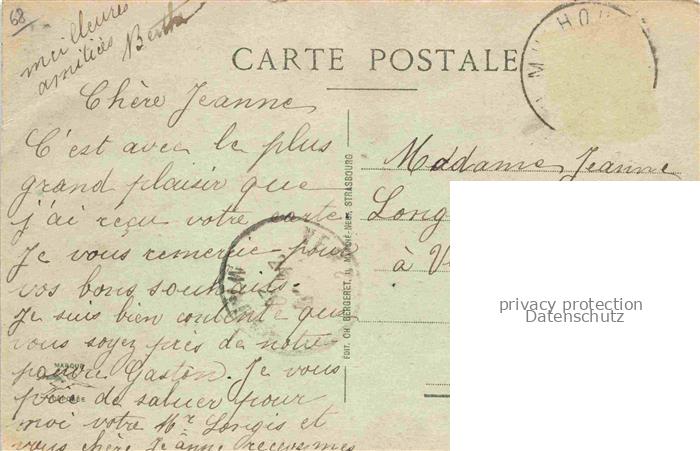 68
meilleures
amitiés Berthe
CARTE POSTALE
Chère Jeanne
C'est avec le plus
grand plaisir que
j'ai reçu votre carte
Je vous remercie pour
vos bons souhaits.
Je suis bien contente que
vous soyez près de notre
pauvre Gaston. Je vous
prie de saluer pour
moi votre Mr Longis et
vous chère Jeanne recevs mes
Madame Jeanne
Long
à V
ÉDIT. CH. BERGERET, 11, MARCHÉ-NEUF, STRASBOURG
MARQUE
privacy protection
Datenschutz